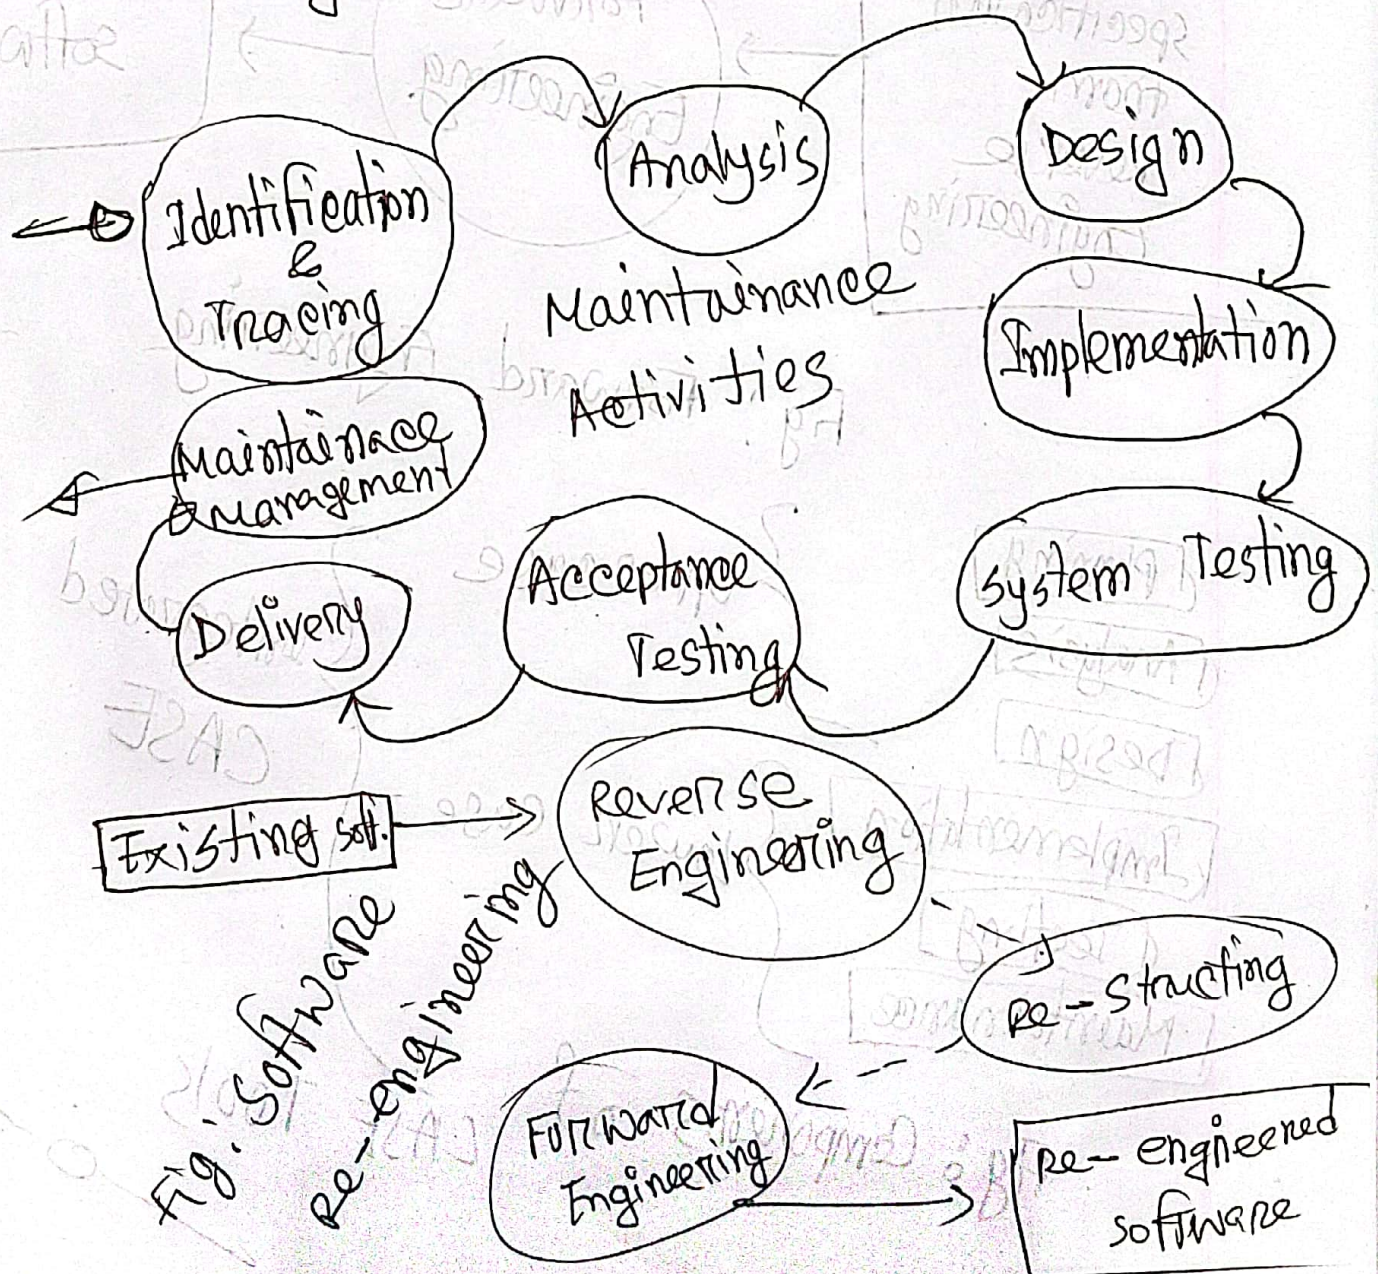 Identification
&
Tracing
Analysis
Design
Maintainance
Activities
Implementation
Maintainace
Management
Delivery
Acceptance
Testing
System Testing
Existing soft.
Reverse
Engineering
Fig: Software
Re-engineering
Re-Structing
Forward
Engineering
Re-engineered
software